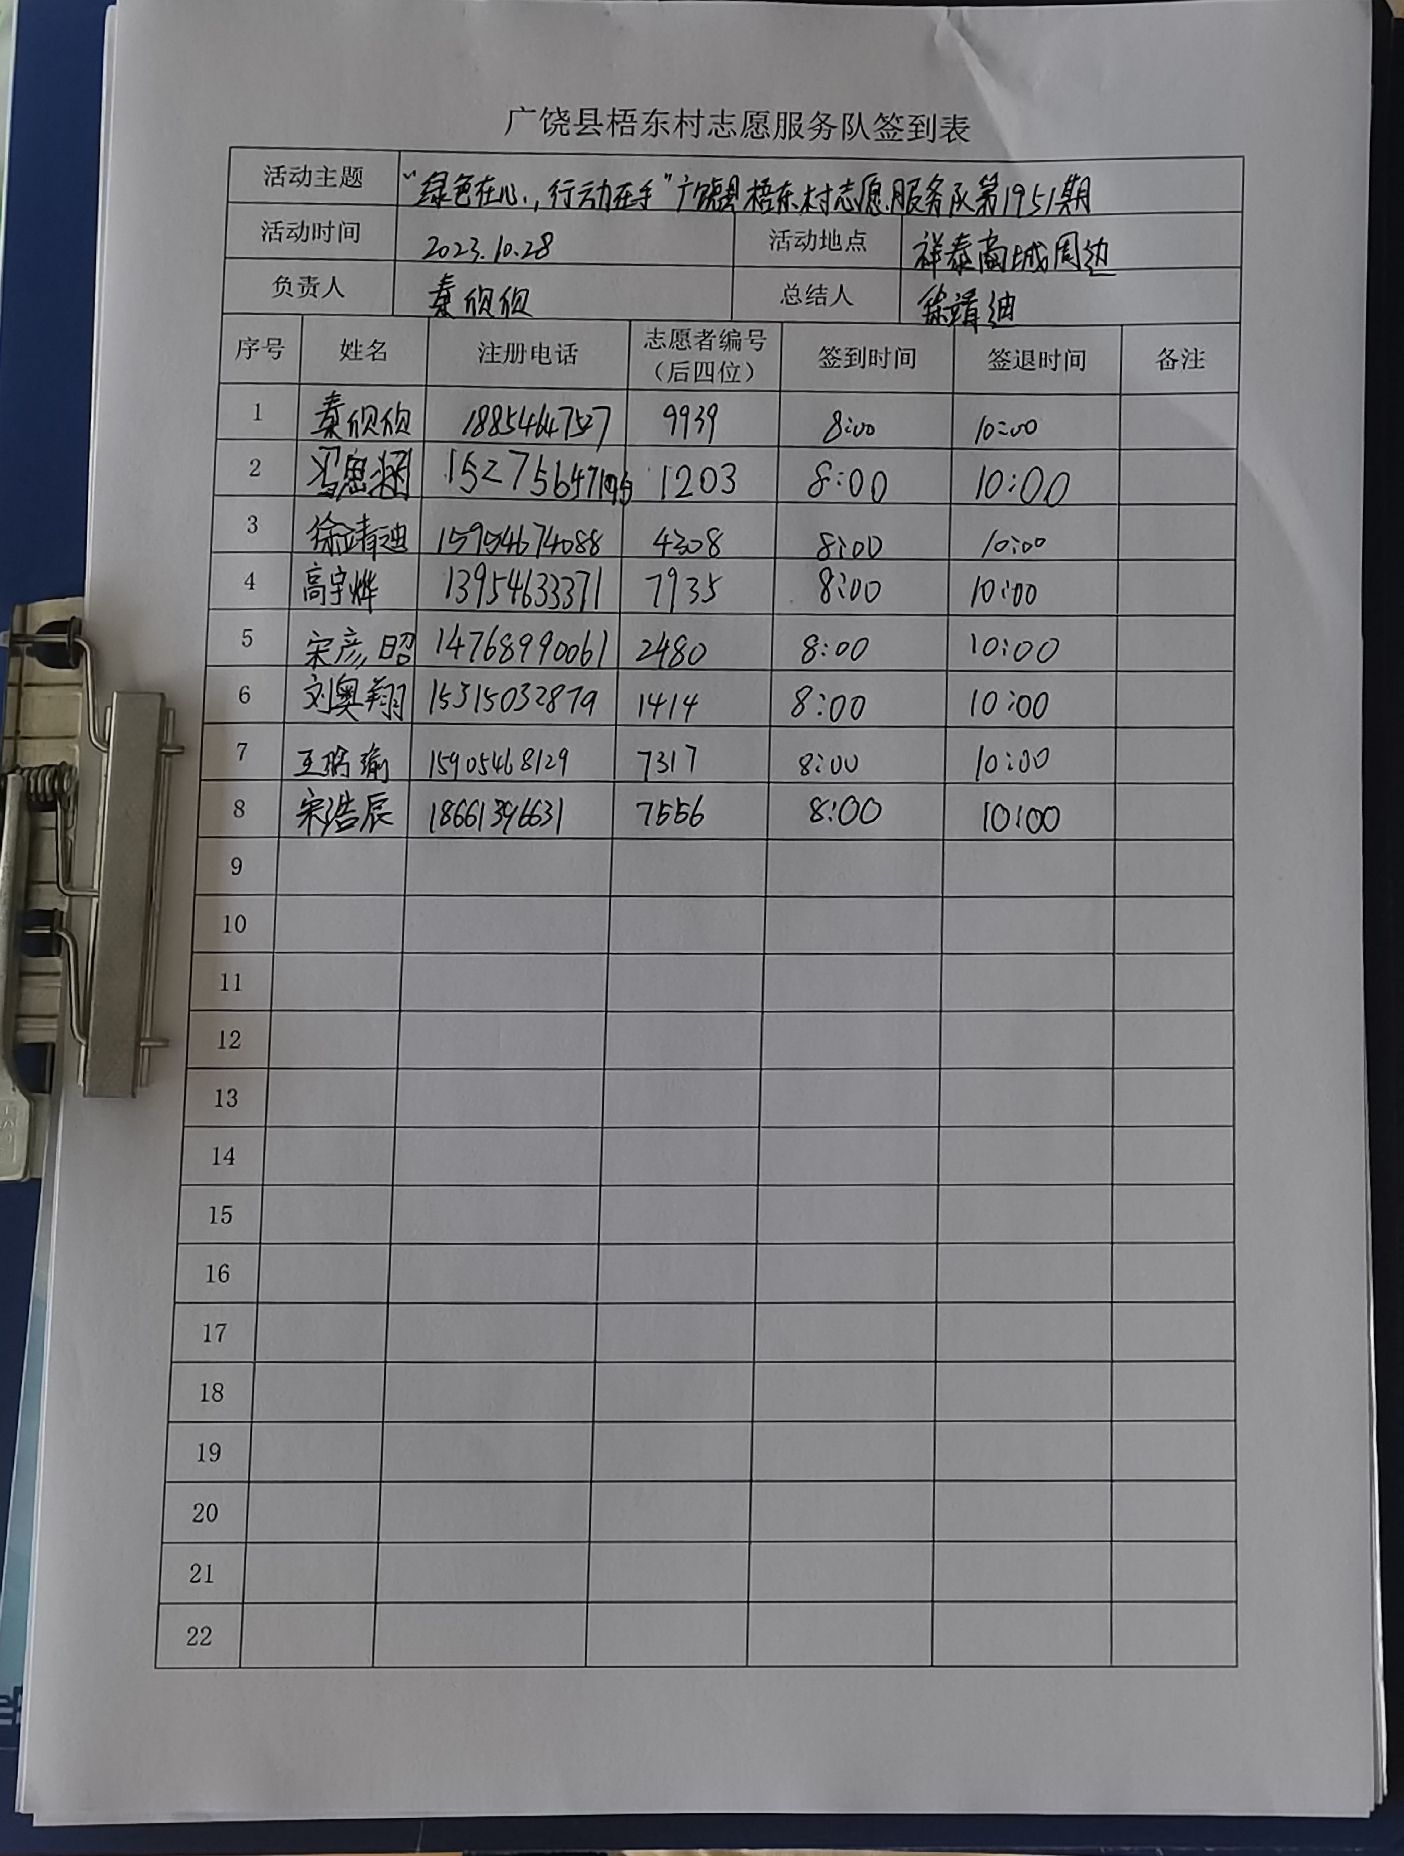 广饶县梧东村志愿服务队签到表
活动主题 “绿色在心,行动在手”广饶县梧东村志愿服务队第1951期
活动时间 2023.10.28 活动地点 祥泰商城周边
负责人 秦侦侦 总结人 徐靖迪
序号 姓名 注册电话 志愿者编号（后四位） 签到时间 签退时间 备注
1 秦侦侦 9939 8:00 10:00
2 冯思涵 1203 8:00 10:00
3 徐靖迪 15954674088 4308 8:00 10:00
4 高宇烨 13954633371 7935 8:00 10:00
5 宋彦昭 14768990061 2480 8:00 10:00
6 刘奥翔 15315032879 1414 8:00 10:00
7 王 瑜 15905468129 7317 8:00 10:00
8 宋浩辰 18661396631 7556 8:00 10:00
9
10
11
12
13
14
15
16
17
18
19
20
21
22